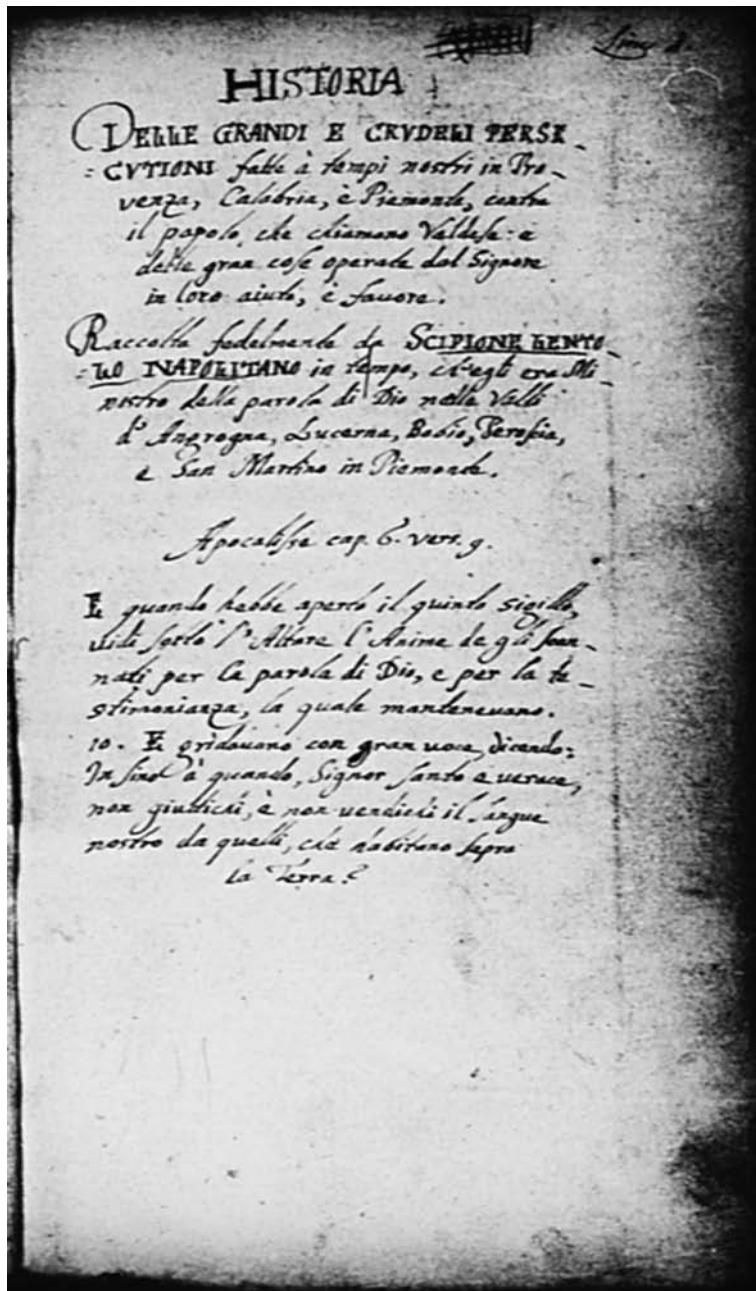 HISTORIA
DELLE GRANDI E CRVDELI PERSE-
=CVTIONI fatte à tempi nostri in Pro-
venza, Calabria, è Piemonte, contra
il popolo, che chiamano Valdese: e
delle gran cose operate dal Signore
in loro aiuto, è favore.
Raccolta fedelmente da SCIPIONE LENTO-
=LO NAPOLITANO in tempo, ch'egli era Mi-
nistro della parola di Dio nelle Valli
d'Angrogna, Lucerna, Bobio, Perosia,
è San Martino in Piemonte.
Apocalisse cap. 6. vers. 9.
E quando hebbe aperto il quinto sigillo,
vidi sotto l'Altare l'Anime de gli scan-
nati per la parola di Dio, e per la te-
stimonianza, la quale mantenevano.
10. E gridavano con gran voce, dicendo:
In sino à quando, Signor santo e verace,
non giudichi, è non vendichi il sangue
nostro da quelli, che habitano sopra
la Terra?